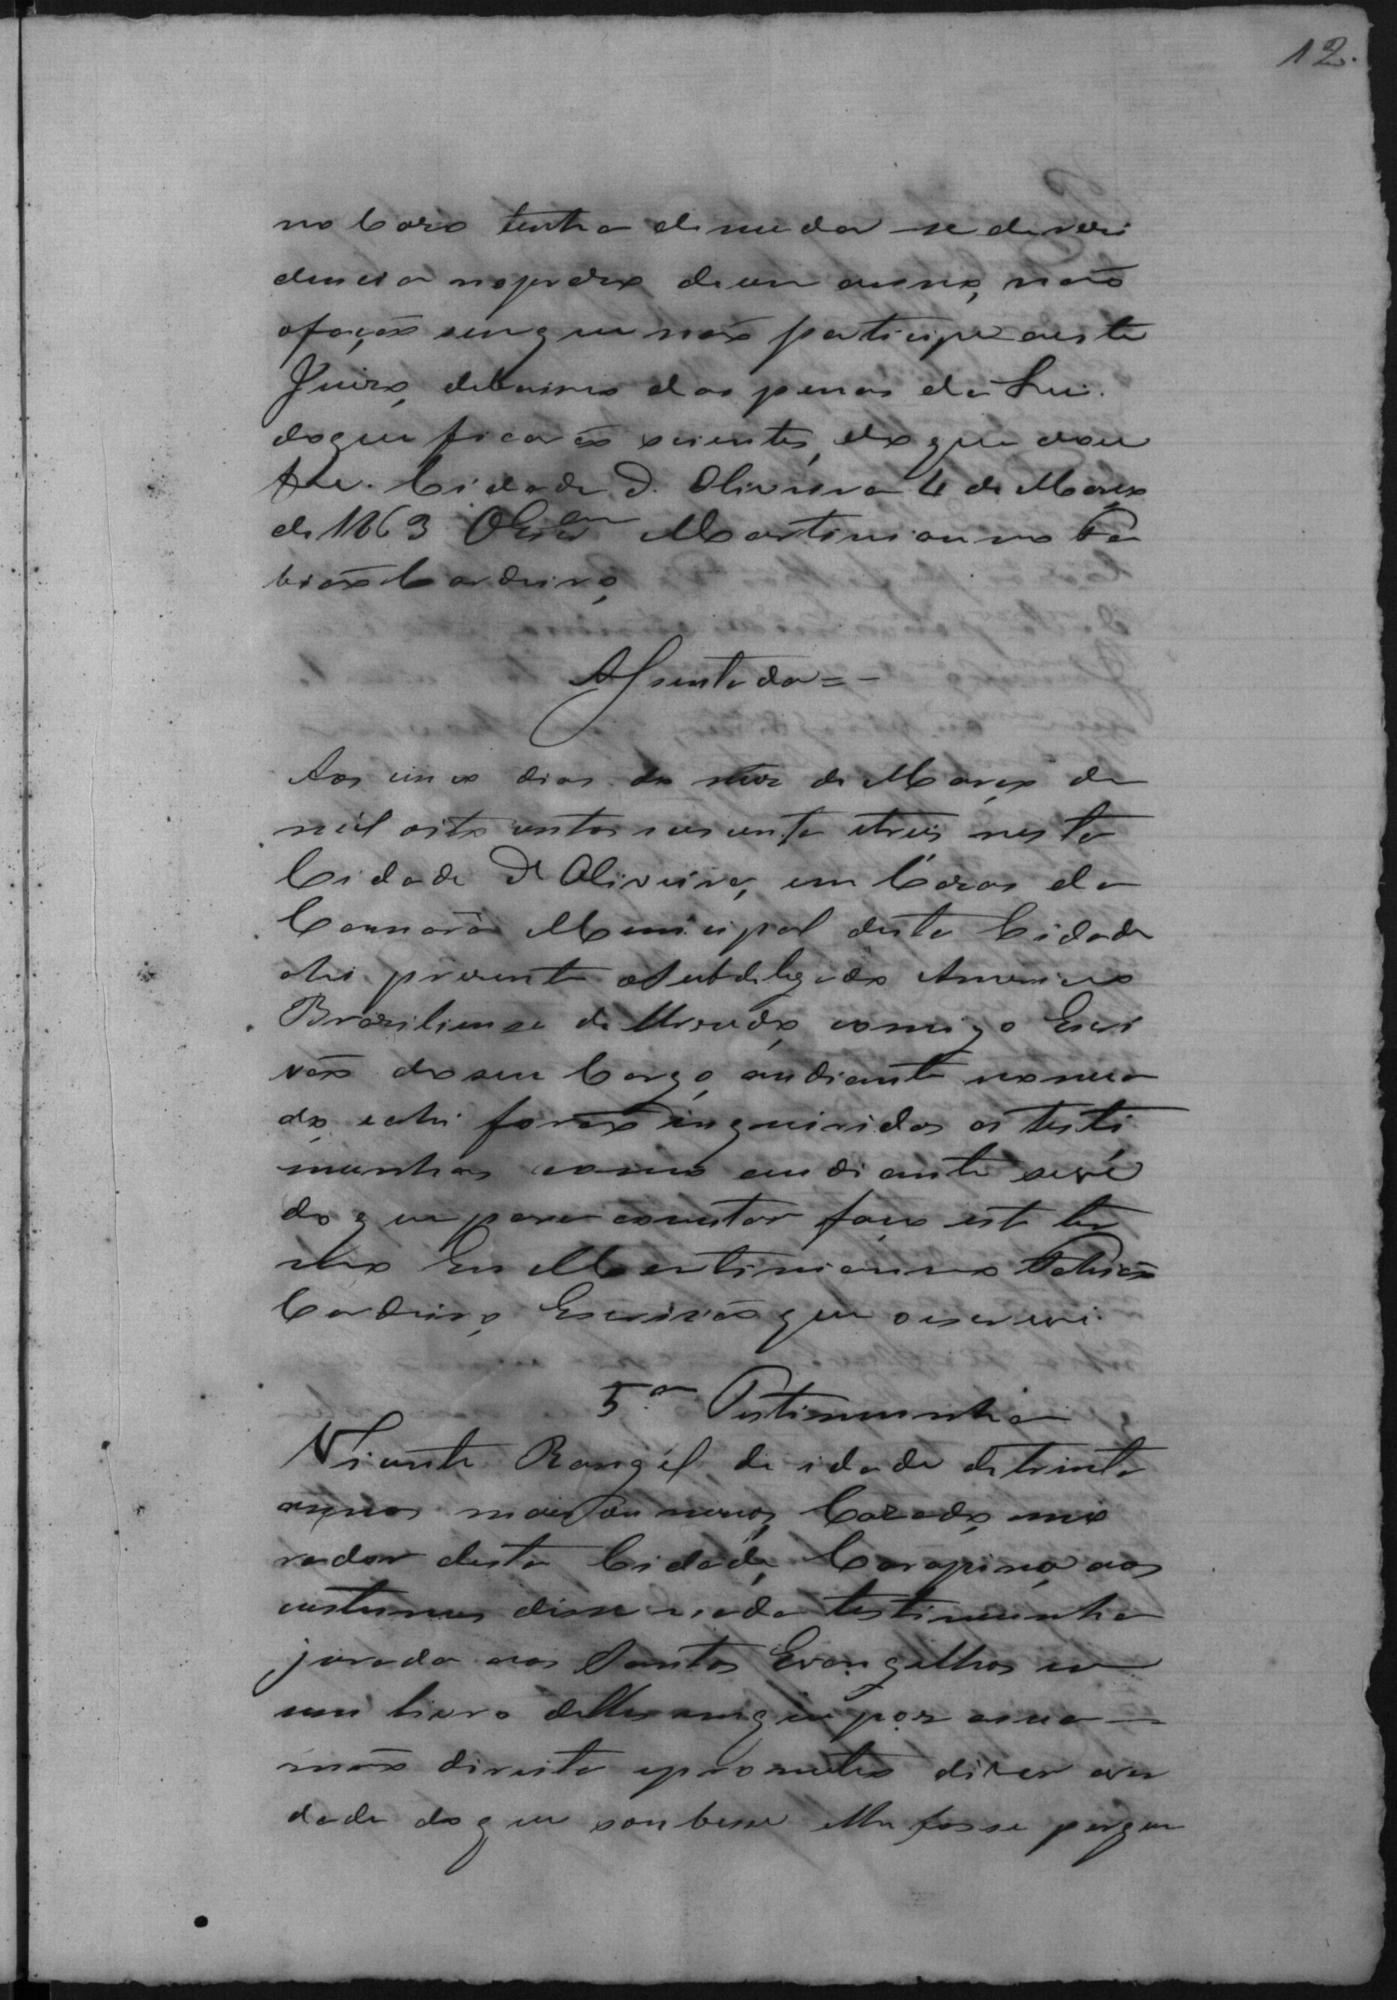 12.
no cazo tenha de mudar-se de rezi
dencia no prazo de um anno, não
o fação sem que não participe a este
Juizo, debaixo das penas da Lei.
do que ficarão scientes, do que dou
fee. Cidade d' Oliveira 4 de Março
de 1863 O Escr.am Martinianno Fa
bião Cordeiro,
Assentada = -
Aos cinco dias do mez de Março de
mil oito centos secenta e treis nesta
Cidade d' Oliveira, em Cazas da
Camara Municipal desta Cidade
ahi prezente o Subdelegado Americo
Braziliense de comigo Escri
vão do seu Cargo, au diante nomea
do, e ahi forão inquiridas as teste
munhas como au diante se vê
do que para constar faço este ter
mo Eu Martinianno Fabião
Cordeiro, Escrivão que o escrevi.
5.a Testemunha
Vicente Rangél de idade de trinta
annos mais ou menos, Cazado, mo
rador desta Cidade, Carapina, aos
custumes disse nada testemunha
jurada aos Santos Evangelhos em
um livro delles em que poz a sua
mão direita e prometeo dizer a ver
dade do que soubesse e lhe fosse pergun